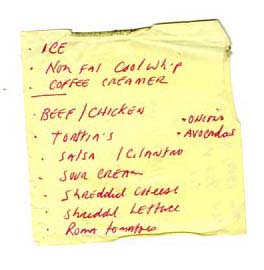 · ICE
· Non Fat Cool Whip
· COFFEE CREAMER
· BEEF / CHICKEN
· TORTILLA'S
· ONIONS
· AVOCADOS
· SALSA / CILANTRO
· SOUR CREAM
· Shredded Cheese
· Shredded Lettuce
· Roma tomatoes